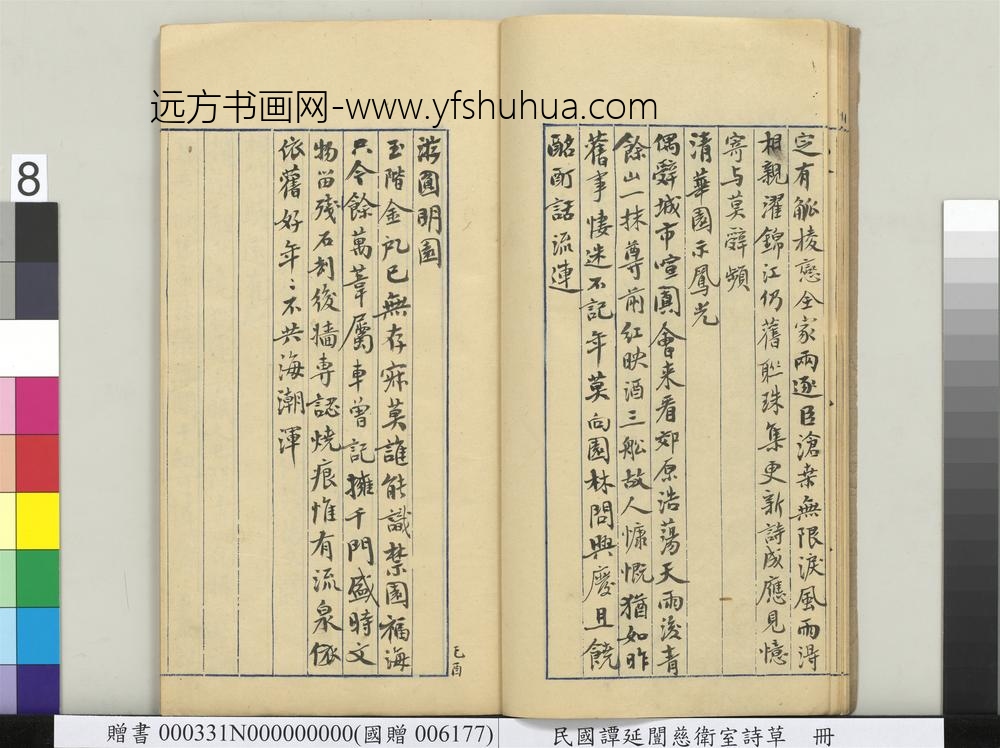 远方书画网-www.yfshuhua.com
定有觚棱戀全家兩逐臣滄桑無限淚風雨得
相親濯錦江仍舊聯珠集更新詩成應見憶
寄与莫辭頻
清華園示鳳光
偶辭城市喧闐會来看郊原浩蕩天雨後青
餘山一抹尊前紅映酒三船故人慷慨猶如昨
舊事悽迷不記年莫向園林問興慶且饒
酩酊話流連
游圓明園
玉階金戺已無存寂莫誰能識禁園福海
只今餘萬葦屬車曾記擁千門盛時文
物留殘石刦後牆専認燒痕惟有流泉依
依舊好年〻不共海潮渾
己酉
8
贈書 000331N000000000(國贈 006177)
民國譚延闓慈衛室詩草 冊